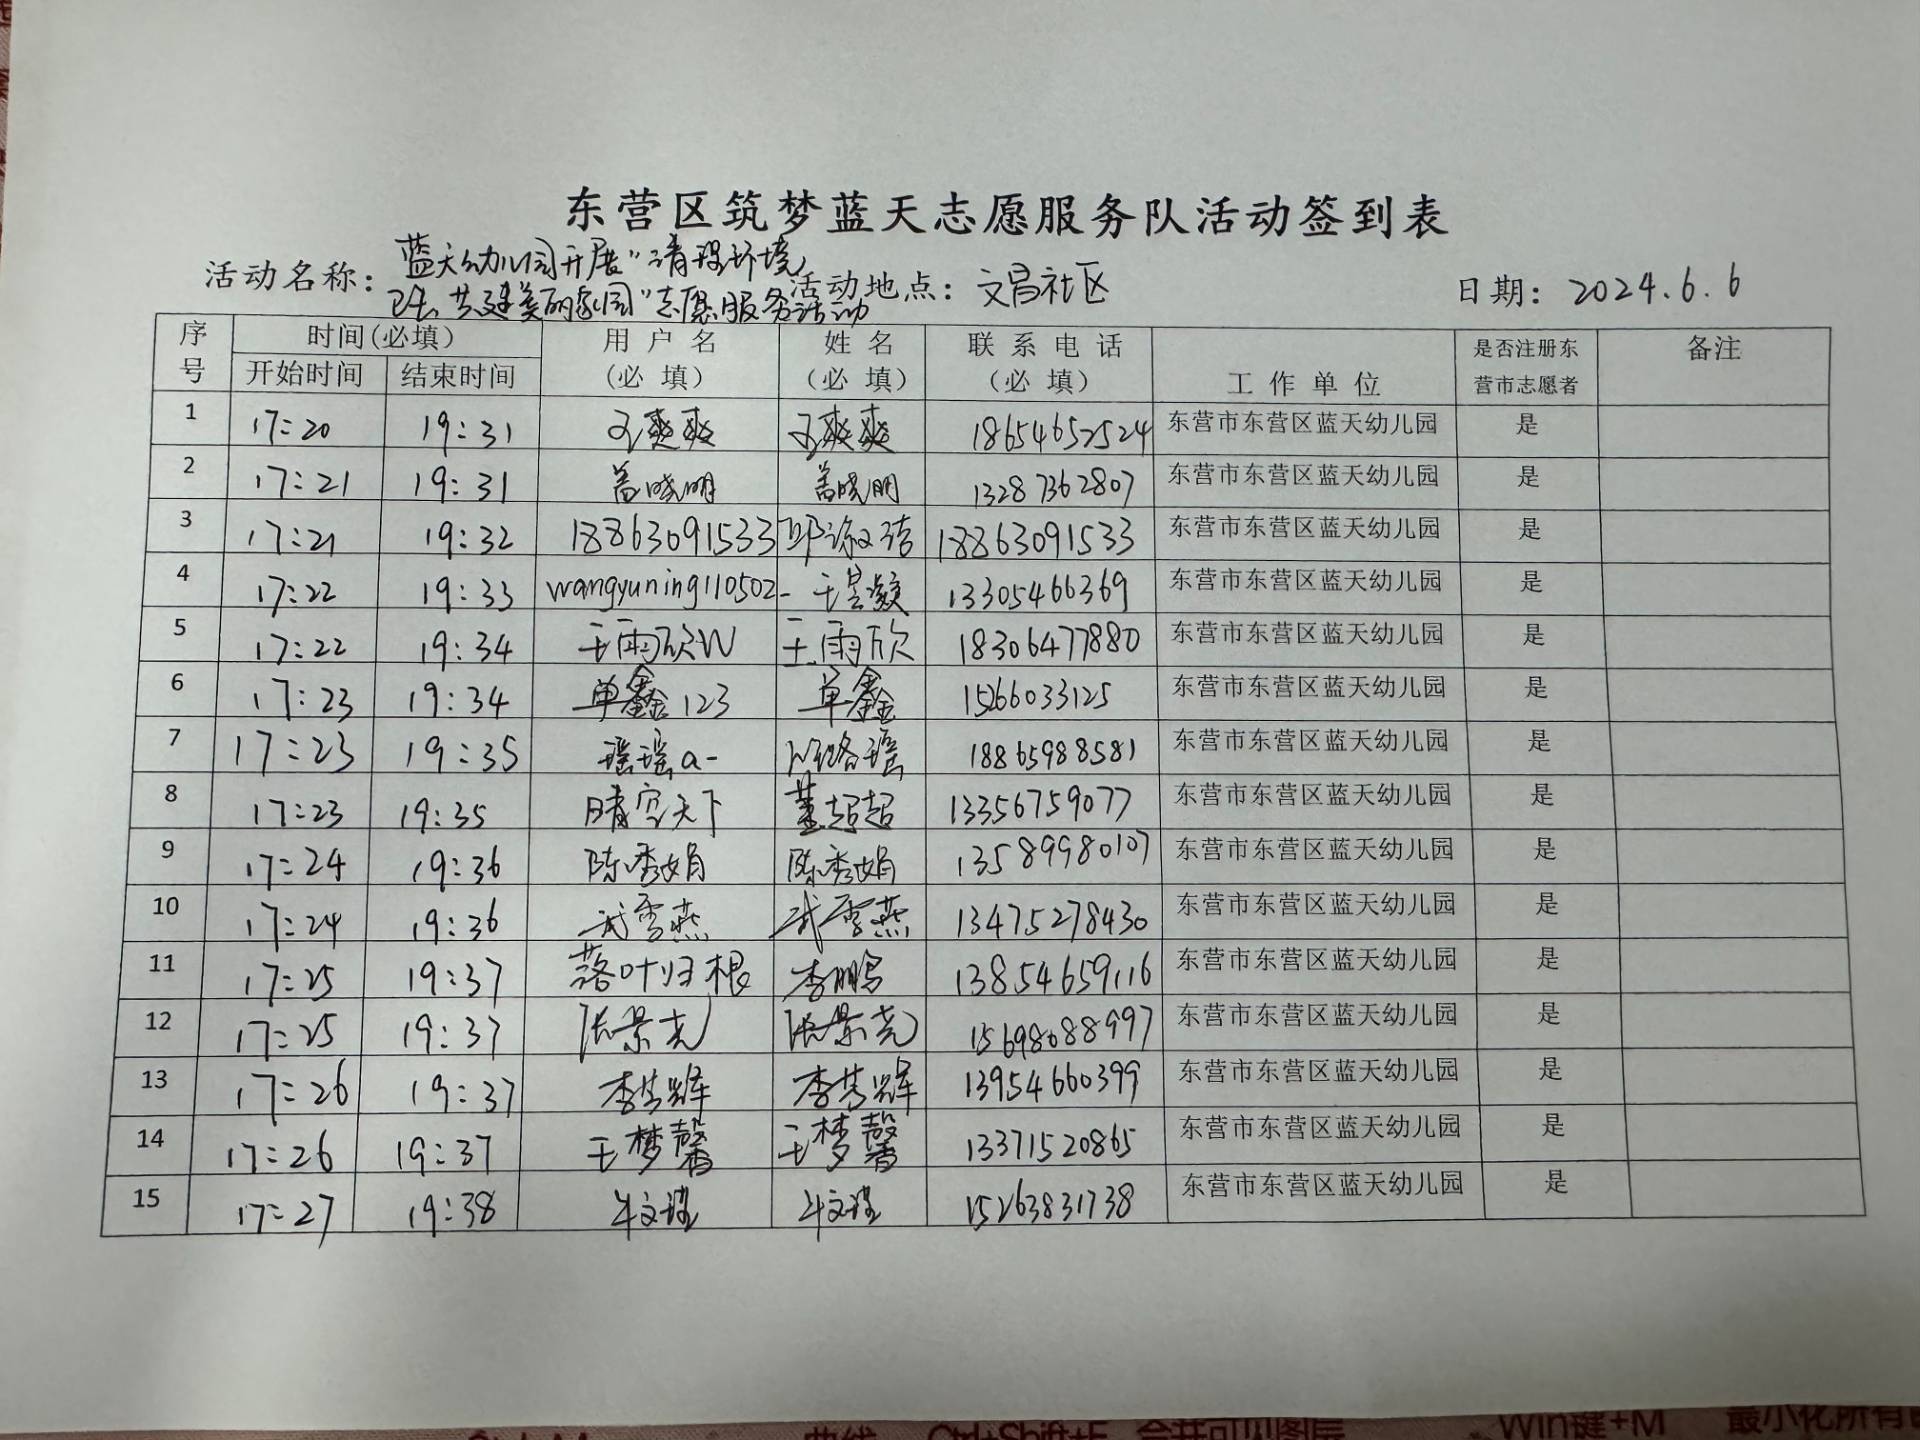 东营区筑梦蓝天志愿服务队活动签到表
活动名称：蓝天幼儿园开展"清理环境卫生 共建美丽家园"志愿服务活动 活动地点：文昌社区 日期：2024.6.6
序号 时间(必填) 用户名(必填) 姓名(必填) 联系电话(必填) 工作单位 是否注册东营市志愿者 备注
开始时间 结束时间
1 17:20 19:31 爽爽 爽爽 18654652524 东营市东营区蓝天幼儿园 是
2 17:21 19:31 盖晓明 盖晓明 13287362807 东营市东营区蓝天幼儿园 是
3 17:21 19:32 18863091533 18863091533 东营市东营区蓝天幼儿园 是
4 17:22 19:33 wangyuning110502- 王 13305466369 东营市东营区蓝天幼儿园 是
5 17:22 19:34 王雨欣W 王雨欣 18306477880 东营市东营区蓝天幼儿园 是
6 17:23 19:34 单鑫123 单鑫 15266033125 东营市东营区蓝天幼儿园 是
7 17:23 19:35 瑶瑶a- 瑶 18865988581 东营市东营区蓝天幼儿园 是
8 17:23 19:35 晴空天下 董超超 13356759077 东营市东营区蓝天幼儿园 是
9 17:24 19:36 陈秀娟 陈秀娟 13589980107 东营市东营区蓝天幼儿园 是
10 17:24 19:36 武雪燕 武雪燕 13475278430 东营市东营区蓝天幼儿园 是
11 17:25 19:37 落叶归根 李鹏 13854659116 东营市东营区蓝天幼儿园 是
12 17:25 19:37 张景尧 张景尧 15698088997 东营市东营区蓝天幼儿园 是
13 17:26 19:37 李梦辉 李梦辉 13954660399 东营市东营区蓝天幼儿园 是
14 17:26 19:37 王梦馨 王梦馨 13371520865 东营市东营区蓝天幼儿园 是
15 17:27 19:38 牛文瑾 牛文瑾 15263831738 东营市东营区蓝天幼儿园 是
Win键+M 最小化所有